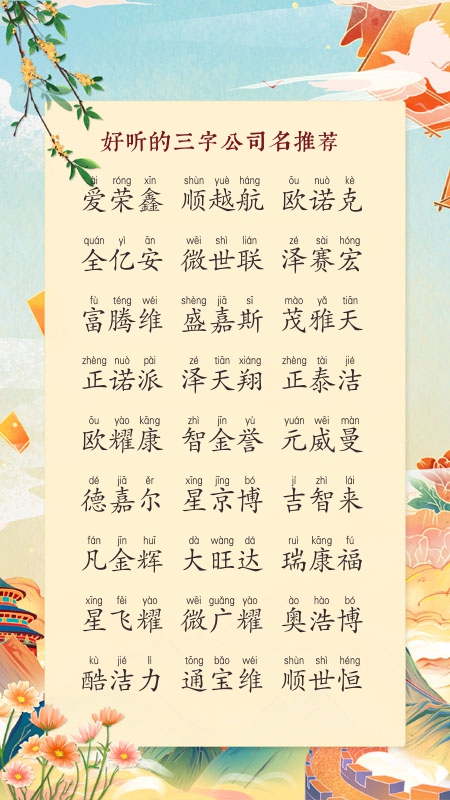 好听的三字公司名推荐
ài róng xīn shùn yuè háng ōu nuò kè
爱荣鑫 顺越航 欧诺克
quán yì ān wēi shì lián zé sài hóng
全亿安 微世联 泽赛宏
fù téng wéi shèng jiā sī mào yǎ tiān
富腾维 盛嘉斯 茂雅天
zhèng nuò pài zé tiān xiáng zhèng tài jié
正诺派 泽天翔 正泰洁
ōu yào kāng zhì jīn yù yuán wēi màn
欧耀康 智金誉 元威曼
dé jiā ěr xīng jīng bó jí zhì lái
德嘉尔 星京博 吉智来
fán jīn huī dà wàng dá ruì kāng fú
凡金辉 大旺达 瑞康福
xīng fēi yào wēi guǎng yào ào hào bó
星飞耀 微广耀 奥浩博
kù jié lì tōng bǎo wéi shùn shì héng
酷洁力 通宝维 顺世恒